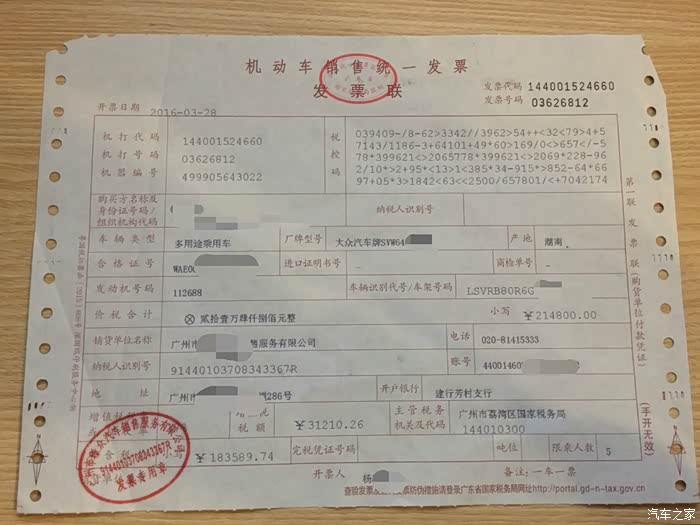 机动车销售统一发票
发票联
发票代码 144001524660
发票号码 03626812
开票日期 2016-03-28
机打代码 144001524660
机打号码 03626812
机器编号 499905643022
税控码
039409-/8-62>3342//3962>54++<32<79>4+5
7143/1186-3+64101+49*60>169/0<>657</-5
78*399621<>2065778*399621<>2069*228-96
2/10*>2+95*<13>1<385*34-915*>852-64*66
97+05*3>1842<63<<2500/657801/<+7042174
购买方名称及
身份证号码/
组织机构代码
纳税人识别号
车辆类型 多用途乘用车 厂牌型号 大众汽车牌SVW64 产地 湖南
合格证号 WAE0 进口证明书号 - 商检单号 -
发动机号码 112688 车辆识别代号/车架号码 LSVRB80R6G
价税合计 ⊗贰拾壹万肆仟捌佰元整 小写 ¥214800.00
销货单位名称 广州市 售服务有限公司 电话 020-81415333
纳税人识别号 91440103708343367R 账号 44001460
地址 广州市 286号 开户银行 建行芳村支行
增值税 税额 ¥31210.26 主管税务机关及代码 广州市荔湾区国家税务局
144010300
¥183589.74 完税凭证号码 吨位 限乘人数 5
开票人 杨 备注:一车一票
查验发票 发票防伪措施请登录广东省国家税务局网址http://portal.gd-n-tax.gov.cn
第一联 发票联(购货单位付款凭证)
(手开无效)
汽车销售服务有限公司
91440103708343367R
发票专用章
汽车之家